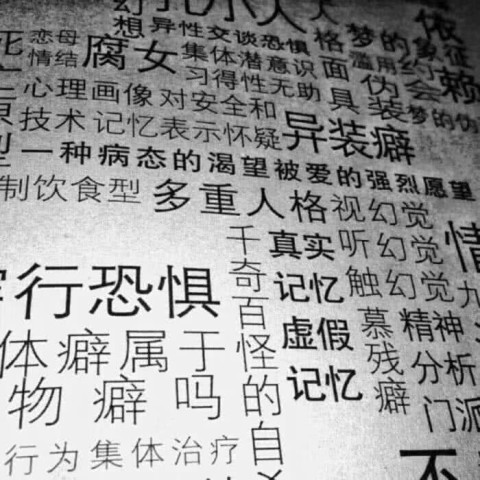 想异性交谈恐惧
格
梦的象征
恋母
情结
腐女
集体潜意识
习得性无助
面
具
滥用
伪
装
约
会
依
赖
心理画像
对安全和
梦的伪
技术
记忆表示怀疑
异装癖
一种病态的渴望被爱的强烈愿望
制饮食型
多重人格
视幻觉
听幻觉
触幻觉
千
奇
百
怪
的
自
真实
记忆
虚假
记忆
行恐惧
体癖属于
物癖吗
慕
残
癖
精神
分析
门派
情
九
行为集体治疗